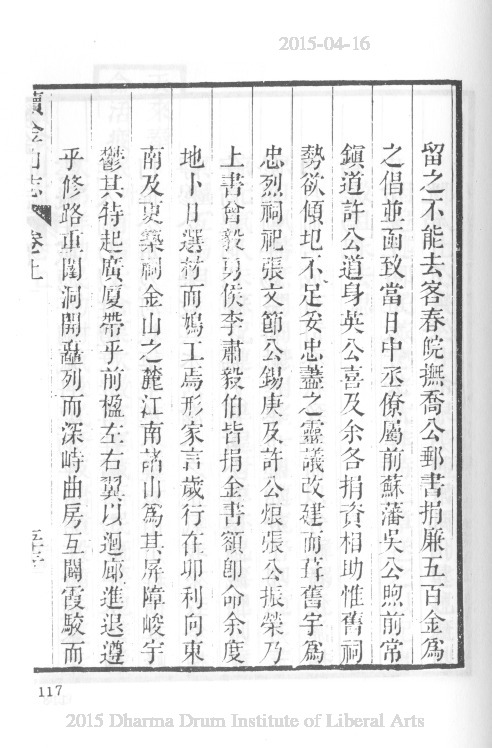 2015-04-16
留之不能去客春皖撫喬公郵書捐廉五百金爲
之倡並函致當日中丞僚屬前蘇藩吳公煦前常
鎭道許公道身英公喜及余各捐資相助惟舊祠
勢欲傾圮不足妥忠藎之靈議改建而葺舊宇爲
忠烈祠祀張文節公錫庚及許公烺張公振榮乃
上書曾毅勇侯李肅毅伯皆捐金書額卽命余度
地卜日選材而鳩工焉形家言歲行在卯利向東
南及更築祠金山之麓江南諸山爲其屏障峻宇
鬱其特起廣厦帶乎前楹左右翼以迴廊進退遵
乎修路重闈洞開矗列而深峙曲房互闢霞駮而
續金山志 卷上
117
2015 Dharma Drum Institute of Liberal Arts